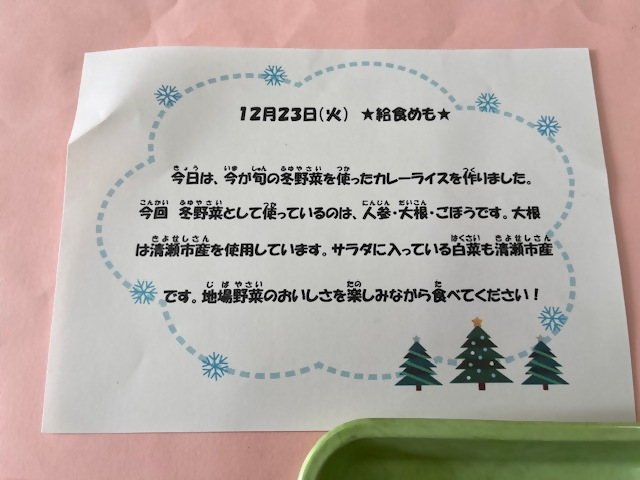 12月23日(火) ★給食めも★
今日は、今が旬の冬野菜を使ったカレーライスを作りました。
今回 冬野菜として使っているのは、人参・大根・ごぼうです。大根
は清瀬市産を使用しています。サラダに入っている白菜も清瀬市産
です。地場野菜のおいしさを楽しみながら食べてください！